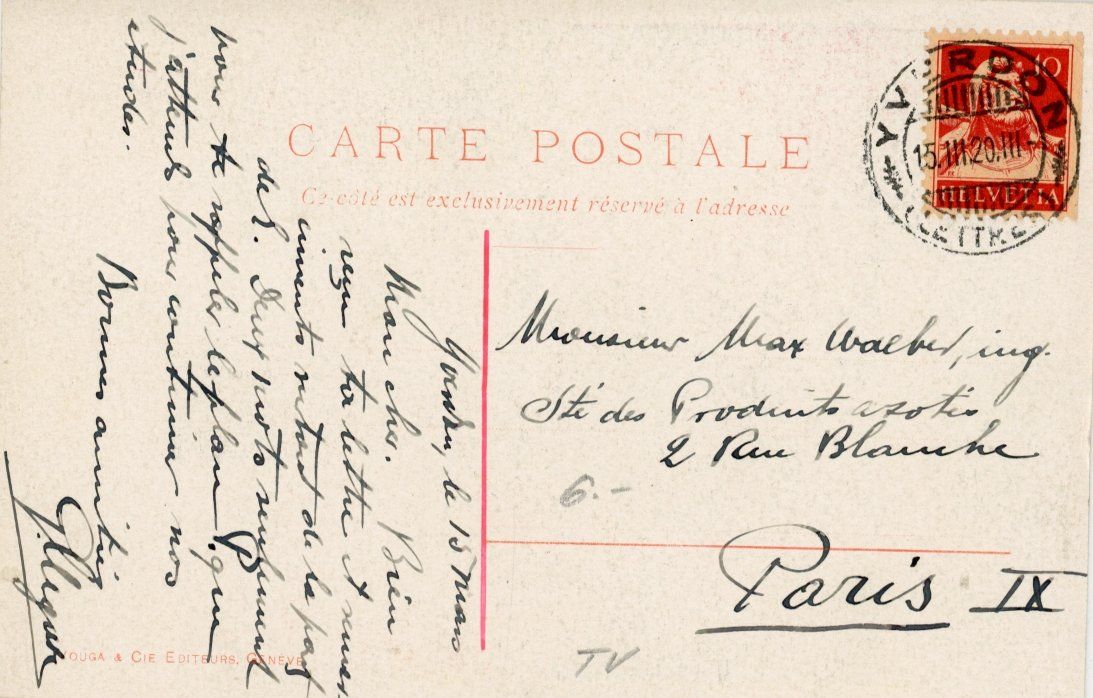 CARTE POSTALE
Ce côté est exclusivement réservé à l'adresse
YVERDON
15.III.20.III
(LETTRES)
10
HELVETIA
Yverdon, le 15 Mars
Mon cher. Bien
reçu ta lettre et remer-
ciements retard de la part
de L. Deux mots seulement
pour te rappeler le plan P. que
j'attends pour continuer nos
études.
Bonnes amitiés
Monsieur Max Waeber, ing.
Sté des Produits azotés
2 Rue Blanche
Paris IX
6.-
TV
& CIE EDITEURS, GENÈVE